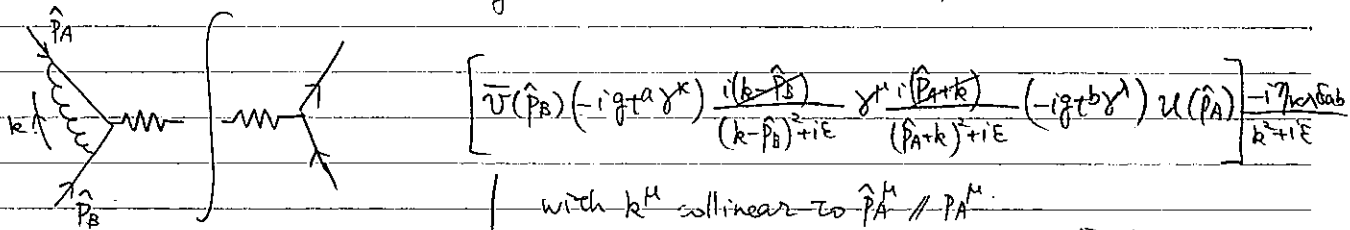 p̂_A
k
p̂_B
[ v̄(p̂_B) (-igt^a γ^κ) i(k̸-p̸̂_B)/((k-p̂_B)²+iε) γ^μ i(p̸̂_A+k̸)/((p̂_A+k)²+iε) (-igt^b γ^λ) u(p̂_A) ] -iη_{κλ}δ_{ab}/(k²+iε)
with k^μ collinear to p̂_A^μ // p_A^μ.